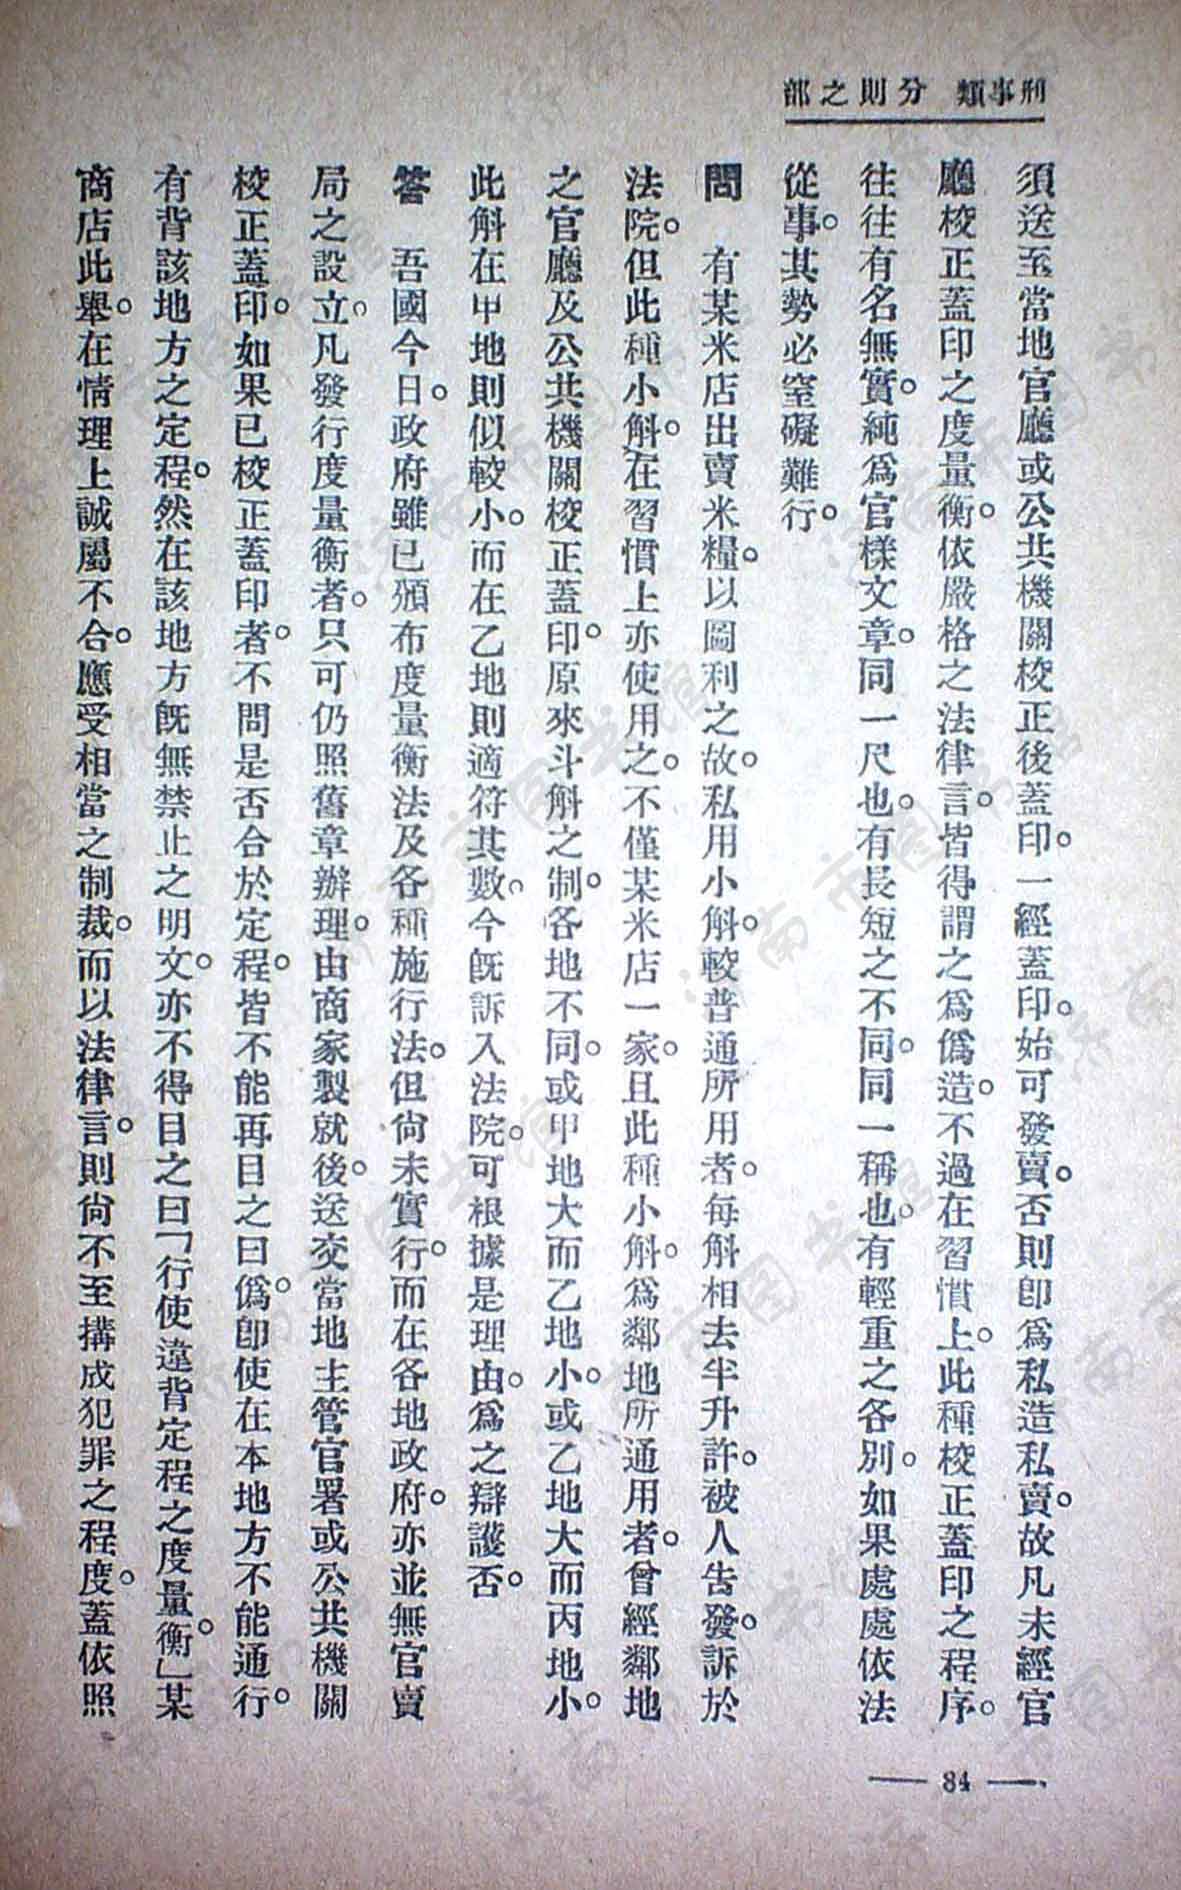 刑事類 分則之部
須送至當地官廳或公共機關校正後蓋印。一經蓋印。始可發賣。否則卽爲私造私賣。故凡未經官
廳校正蓋印之度量衡。依嚴格之法律言。皆得謂之爲僞造。不過在習慣上。此種校正蓋印之程序。
往往有名無實。純爲官樣文章。同一尺也。有長短之不同。同一稱也。有輕重之各別。如果處處依法
從事。其勢必窒礙難行。
問 有某米店出賣米糧。以圖利之故。私用小斛。較普通所用者。每斛相去半升許。被人吿發。訴於
法院。但此種小斛。在習慣上亦使用之。不僅某米店一家。且此種小斛。爲鄰地所通用者。曾經鄰地
之官廳及公共機關校正蓋印。原來斗斛之制。各地不同。或甲地大而乙地小。或乙地大而丙地小。
此斛在甲地則似較小。而在乙地則適符其數。今旣訴入法院。可根據是理由。爲之辯護否。
答 吾國今日。政府雖已頒布度量衡法及各種施行法。但尙未實行。而在各地政府。亦並無官賣
局之設立。凡發行度量衡者。只可仍照舊章辦理。由商家製就後。送交當地主管官署或公共機關
校正蓋印。如果已校正蓋印者。不問是否合於定程。皆不能再目之曰僞。卽使在本地方不能通行。
有背該地方之定程。然在該地方旣無禁止之明文。亦不得目之曰「行使違背定程之度量衡。」某
商店此舉。在情理上誠屬不合。應受相當之制裁。而以法律言。則尙不至搆成犯罪之程度。蓋依照
— 84 —
济南市图书馆